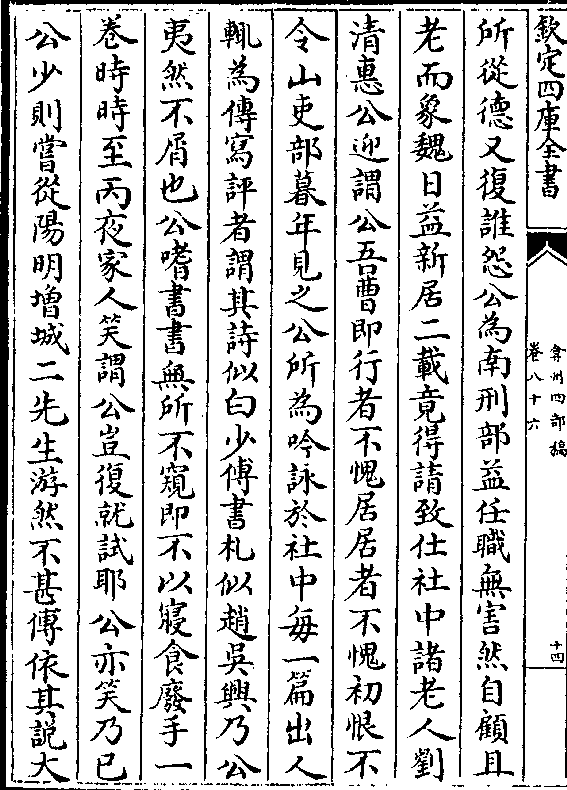 欽定四庫全書
弇州四部稿
卷八十六
十四
所從德又復誰怨公為南刑部益任職無害然自顧且
老而象魏日益新居二載竟得請致仕社中諸老人劉
清惠公迎謂公吾曹即行者不愧居居者不愧初恨不
令山吏部暮年見之公所為吟詠於社中每一篇出人
輒為傳寫評者謂其詩似白少傅書札似趙吳興乃公
夷然不屑也公嗜書書無所不窺即不以寢食廢手一
卷時時至丙夜家人笑謂公豈復就試耶公亦笑乃已
公少則嘗從陽明增城二先生游然不甚傅依其說大